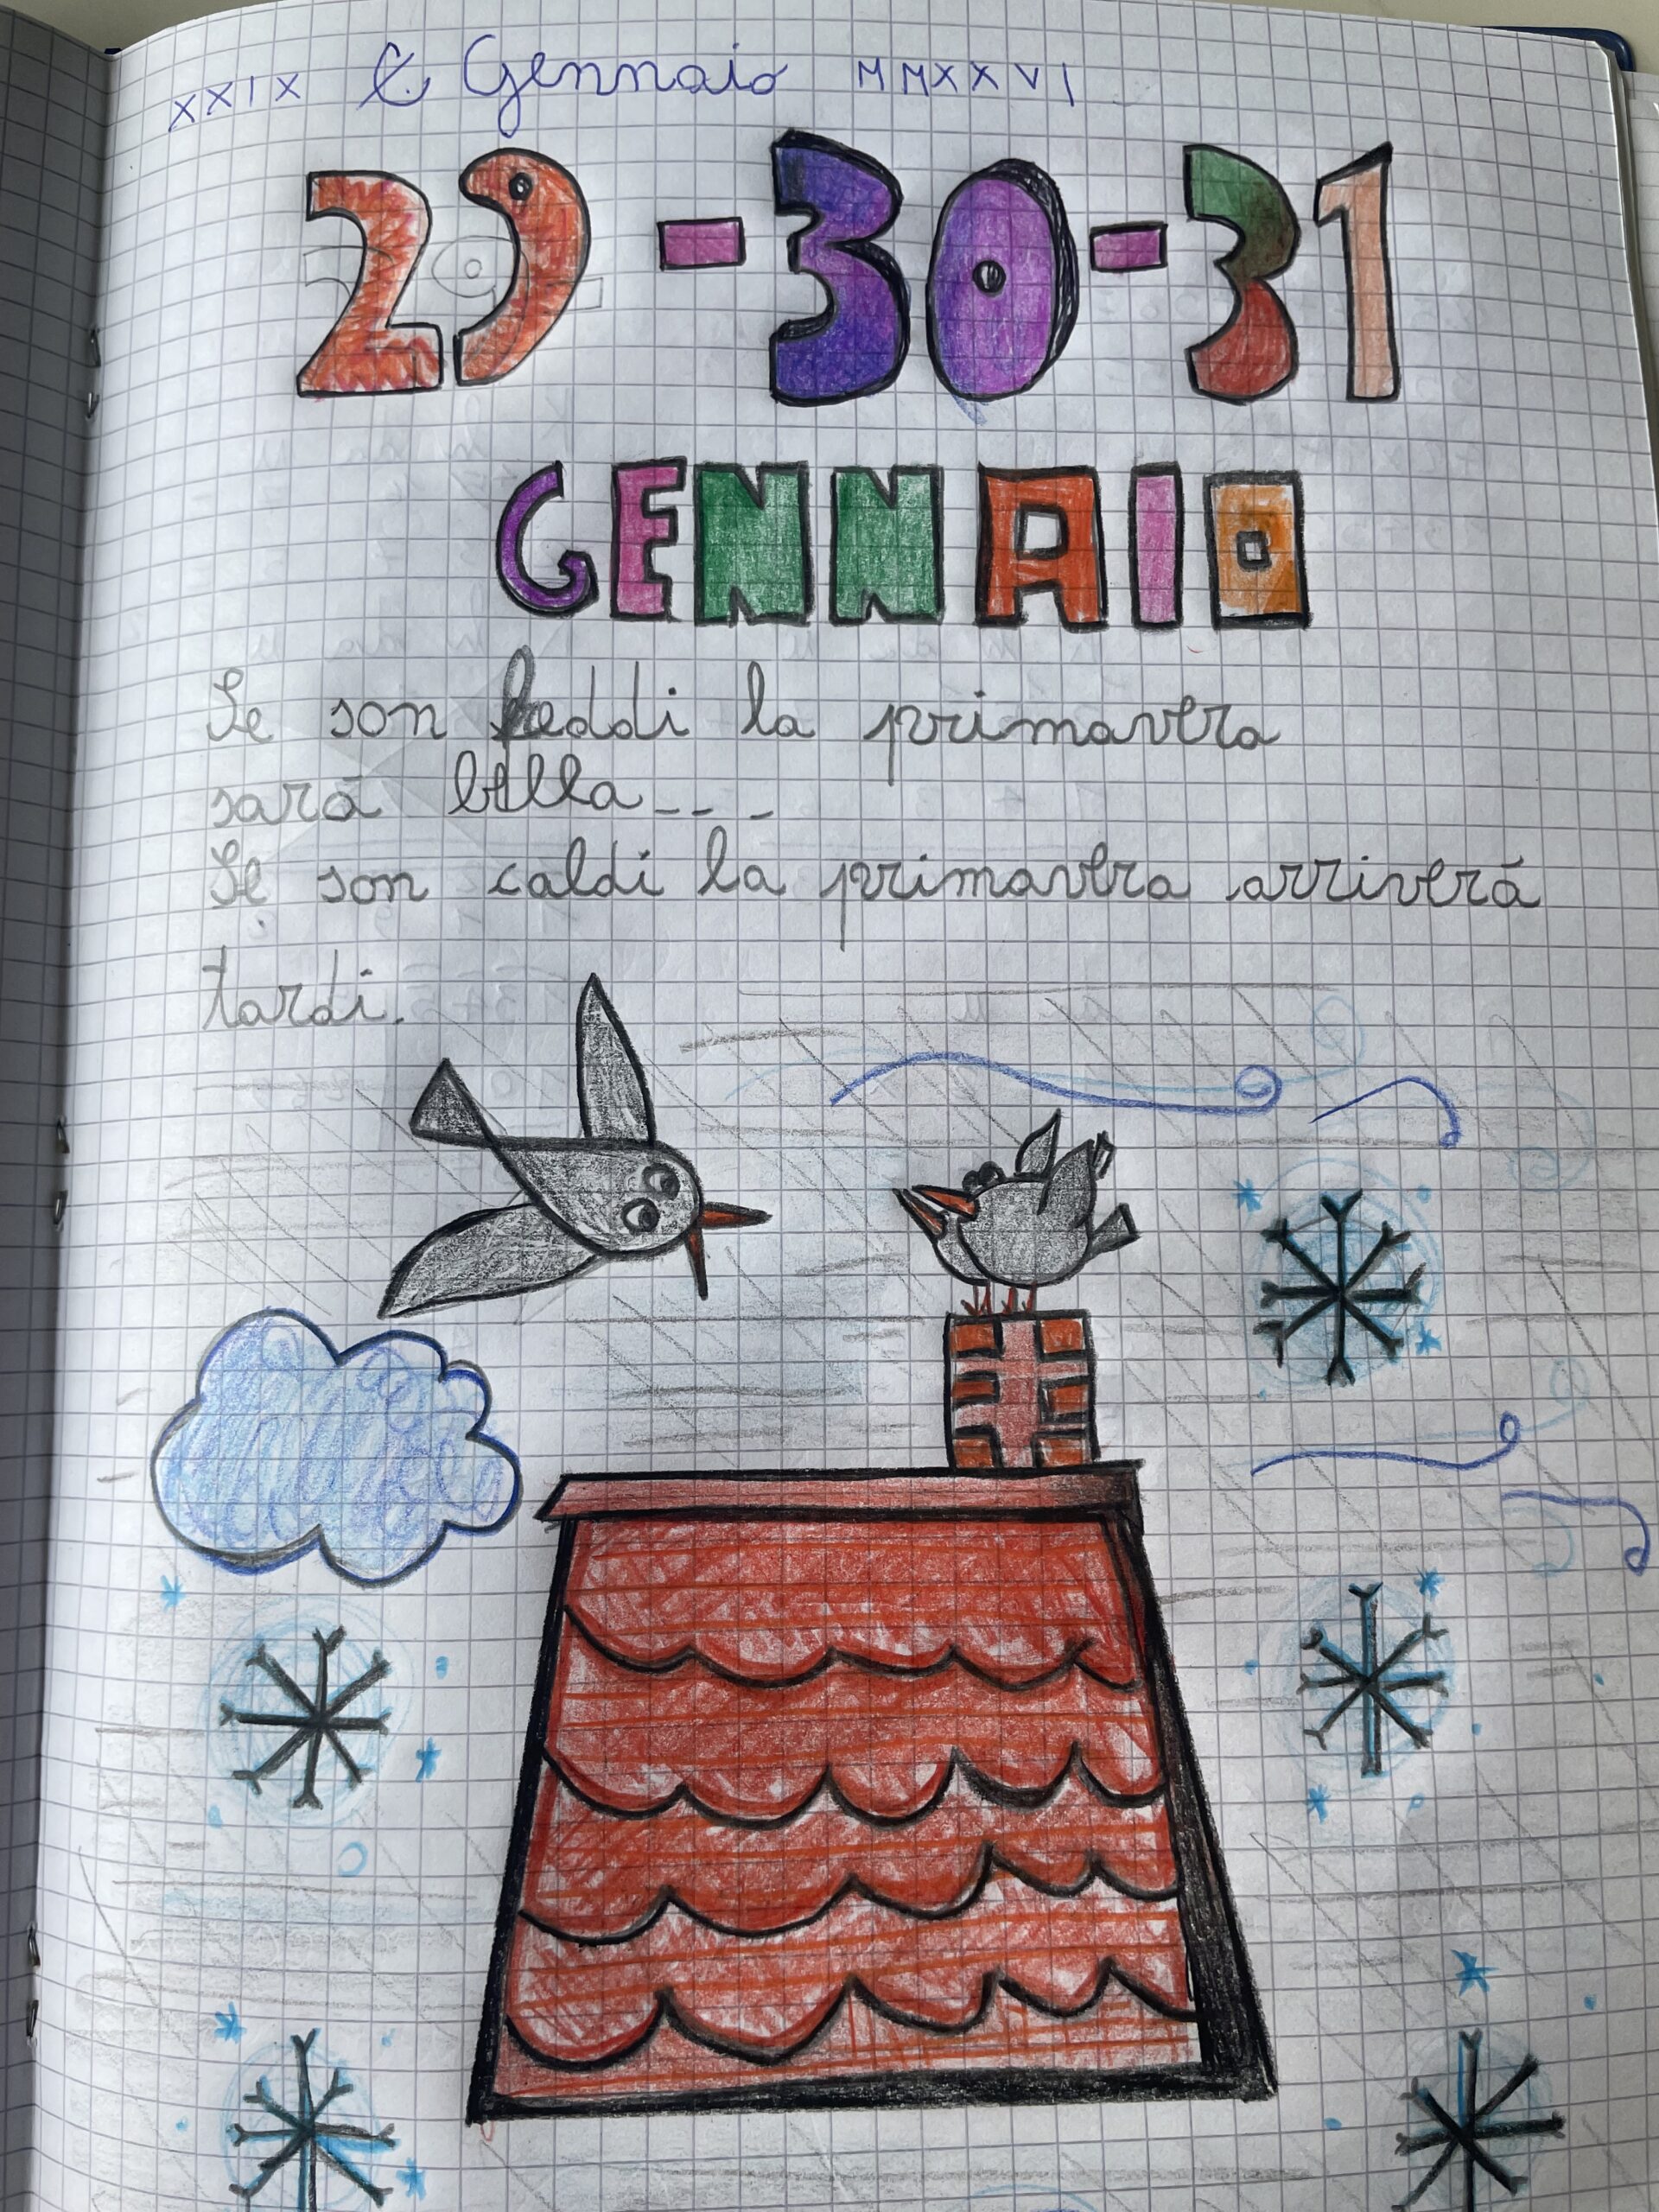 XXIX G Gennaio MMXXVI
29-30-31
GENNAIO
Se son freddi la primavera
sará bella---
Se son caldi la primavera arriverá
tardi.